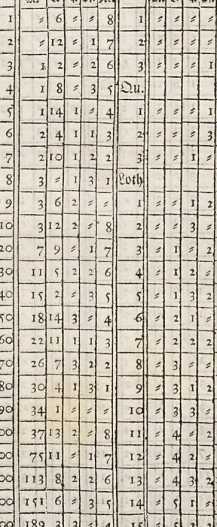 1 ⸗ 6 ⸗ ⸗ 8 1 ⸗ ⸗ ⸗ ⸗
2 ⸗ 12 ⸗ 1 7 2 ⸗ ⸗ ⸗ ⸗
3 1 2 ⸗ 2 6 3 ⸗ ⸗ ⸗ ⸗
4 1 8 ⸗ 3 5 Qu.
5 1 14 1 ⸗ 4 1 ⸗ ⸗ ⸗ 1
6 2 4 1 1 3 2 ⸗ ⸗ ⸗ 3
7 2 10 1 2 2 3 ⸗ ⸗ 1 ⸗
8 3 ⸗ 1 3 1 Loth
9 3 6 2 ⸗ ⸗ 1 ⸗ ⸗ 1 2
10 3 12 2 ⸗ 8 2 ⸗ ⸗ 3 ⸗
20 7 9 ⸗ 1 7 3 ⸗ 1 ⸗ 2
30 11 5 2 2 6 4 ⸗ 1 2 ⸗
40 15 2 ⸗ 3 5 5 ⸗ 1 3 2
50 18 14 3 ⸗ 4 6 ⸗ 2 1 ⸗
60 22 11 1 1 3 7 ⸗ 2 2 2
70 26 7 3 2 2 8 ⸗ 3 ⸗ ⸗
80 30 4 1 3 1 9 ⸗ 3 1 2
90 34 1 ⸗ ⸗ ⸗ 10 ⸗ 3 3 ⸗
00 37 13 2 ⸗ 8 11 ⸗ 4 ⸗ 2
00 75 11 ⸗ 1 7 12 ⸗ 4 2 ⸗
00 113 8 2 2 6 13 ⸗ 4 3 2
00 151 6 ⸗ 3 5 14 ⸗ 5 1 ⸗
00 189 3 3